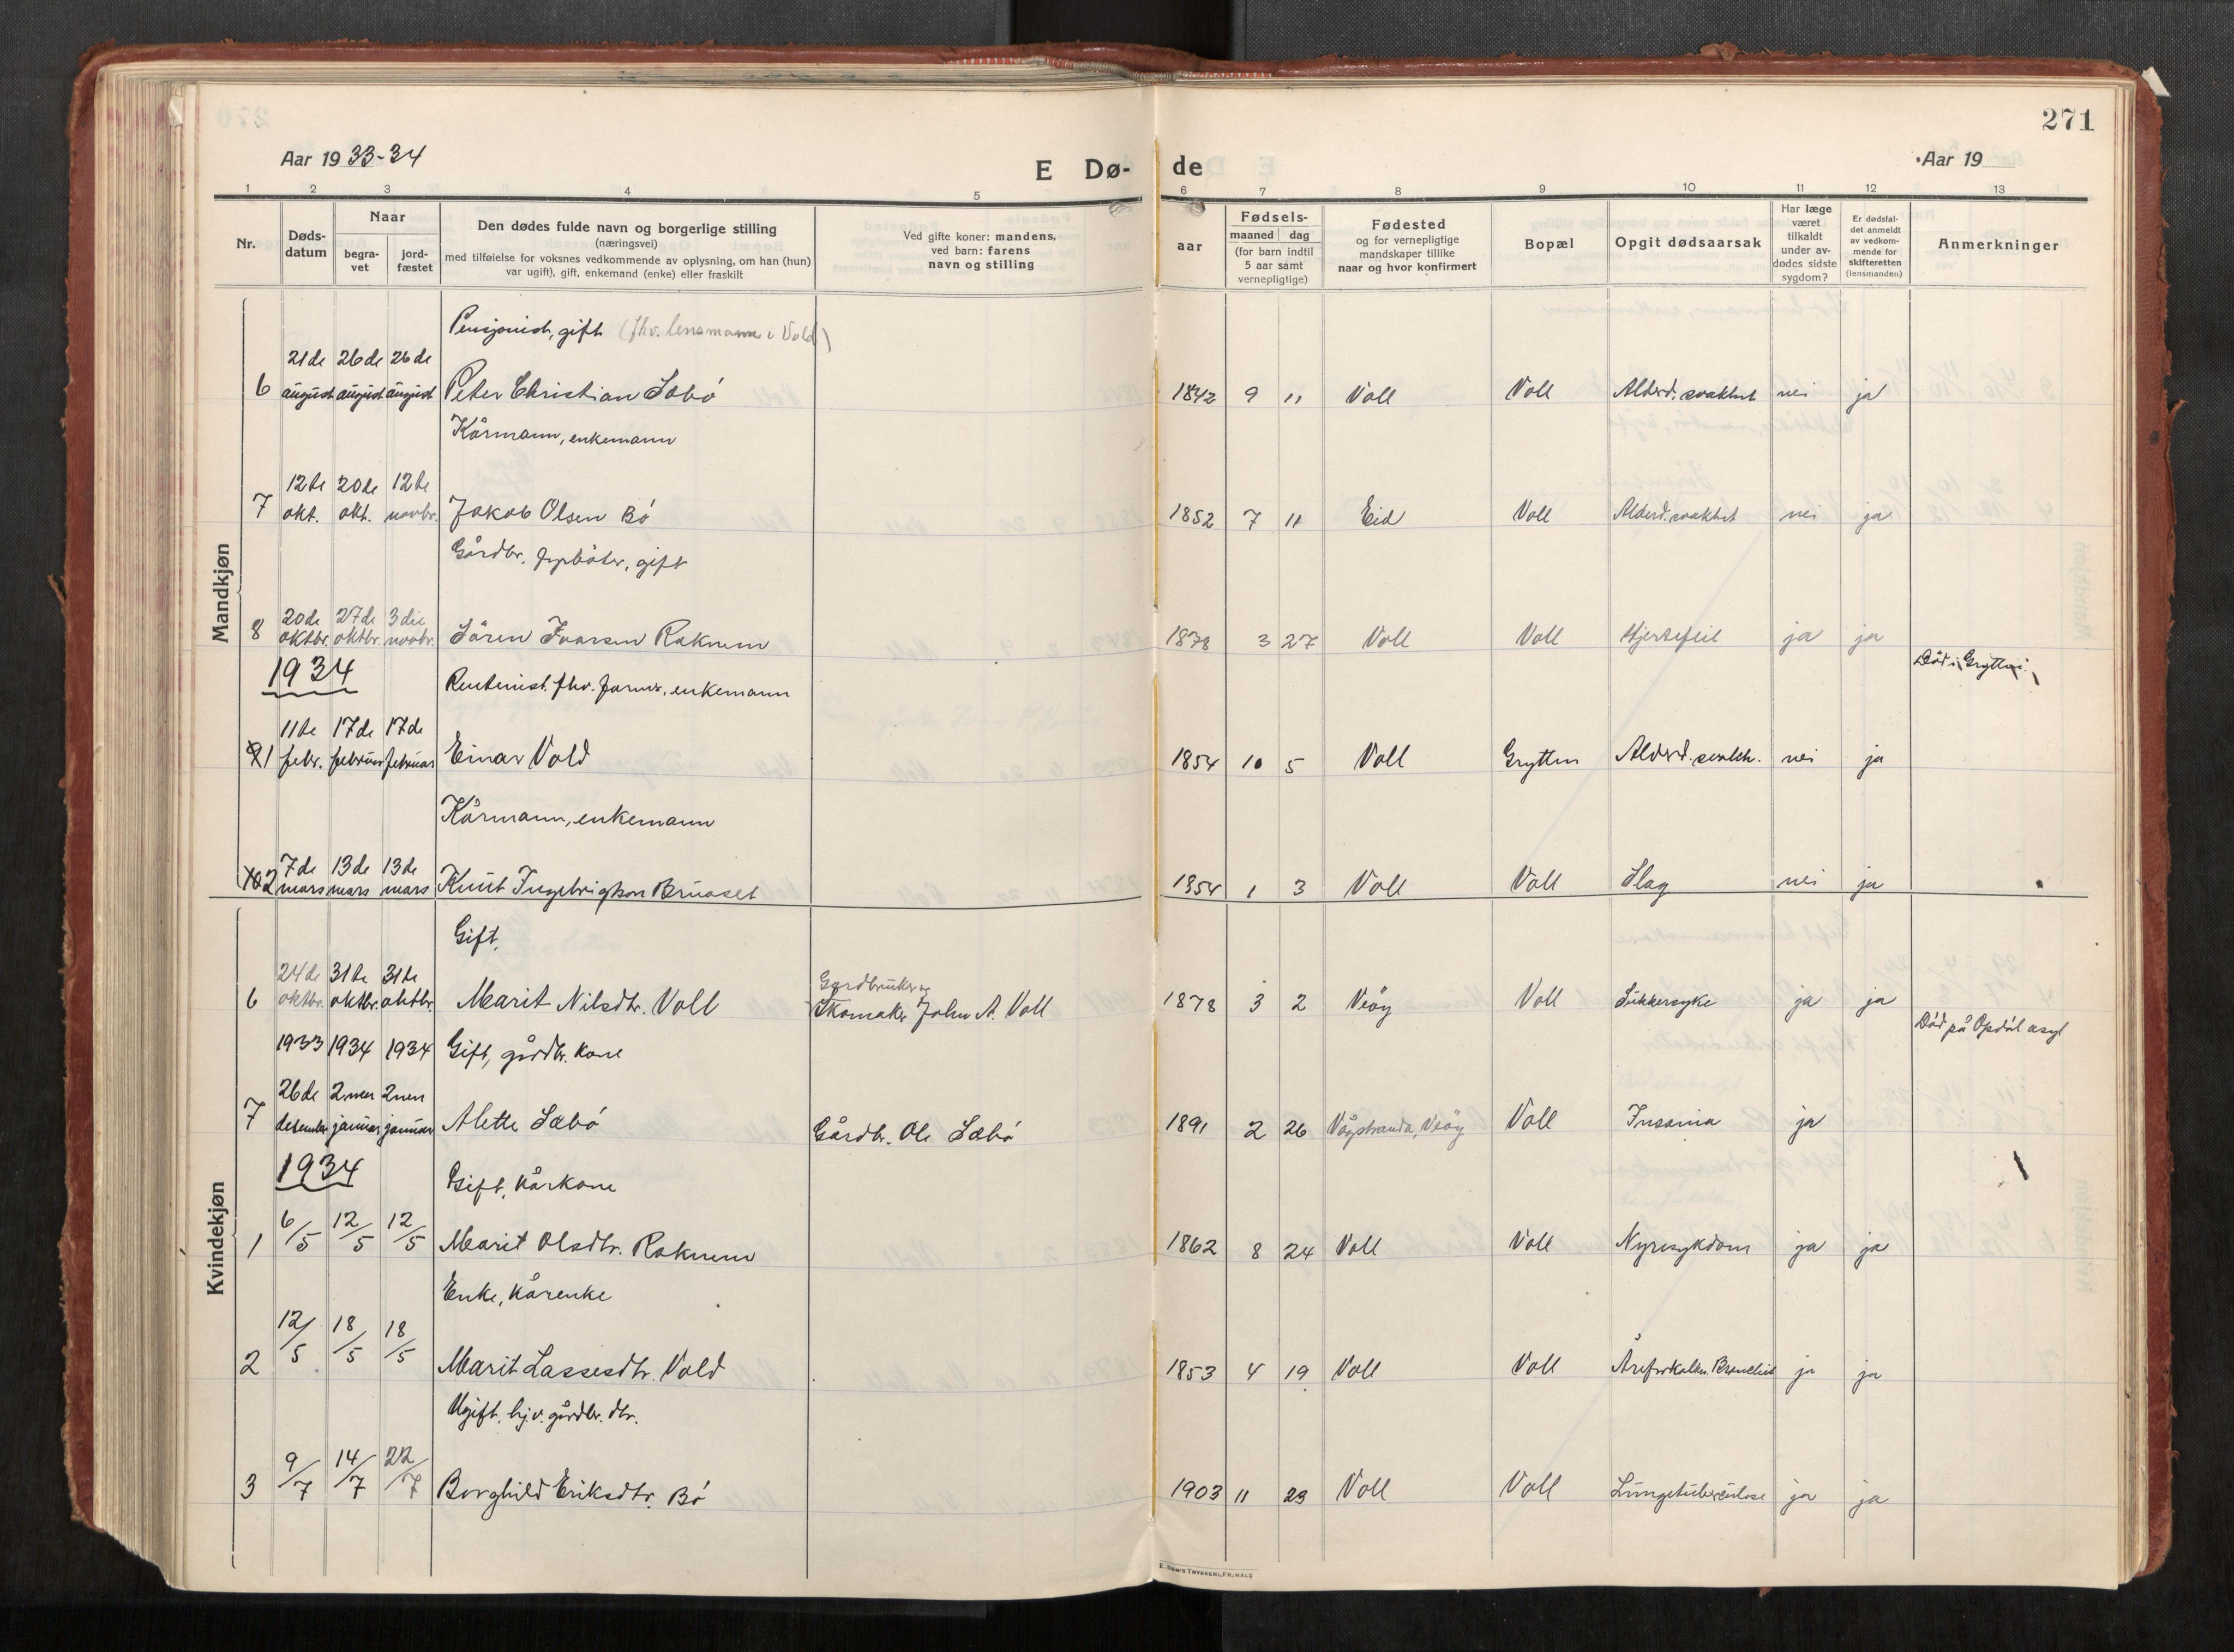 271
Aar 1933-34
E Dø- de
Aar 19
1 2 3 4 5 6 7 8 9 10 11 12 13
Nr.
Døds-
datum
Naar
begra-
vet
jord-
fæstet
Den dødes fulde navn og borgerlige stilling
(næringsvei)
med tilføielse for voksnes vedkommende av oplysning, om han (hun)
var ugift), gift, enkemand (enke) eller fraskilt
Ved gifte koner: mandens,
ved barn: farens
navn og stilling
Fødsels-
aar
maaned dag
(for barn indtil
5 aar samt
vernepligtige)
Fødested
og for vernepligtige
mandskaper tillike
naar og hvor konfirmert
Bopæl
Opgit dødsaarsak
Har læge
været
tilkaldt
under av-
dødes sidste
sygdom?
Er dødsfal-
det anmeldt
av vedkom-
mende for
skifteretten
(lensmanden)
Anmerkninger
Mandkjøn
Pensjonist, gift (fhv. lensmann i Vold)
21de 26de 26de
6 august august august Peter Christian Sæbø 1842 9 11 Voll Voll Alderd. svakhet nei ja
Kårmann, enkemann
12te 20de 12te
7 okt. okt. novbr. Jakob Olsen Bø 1852 7 11 Eid Voll Alderd. svakhet nei ja
Gårdbr. gift
20de 27de 3die
8 oktbr. oktbr. novbr. Sören Ivarsen Raknem 1878 3 27 Voll Voll Hjertefeil ja ja
1934
Rentenist. fhv. farmer, enkemann Död i Grytten.
11te 17de 17de
1 febr. februar februar Einar Vold 1854 10 5 Voll Grytten Alderd. svakh. nei ja
Kårmann, enkemann
7de 13de 13de
2 mars mars mars Knut Ingebrigtson Bruaset 1854 1 3 Voll Voll Slag nei ja
Kvindekjøn
Gift.
24de 31te 31te Gardbruker og
6 oktbr. oktbr. oktbr. Marit Nilsdtr. Voll Skomaker John A. Voll 1878 3 2 Veöy Voll Sukkersyke ja ja
1933 1934 1934 Gift, gårdbr. kone Död på Opdöl asyl
26de 2nen 2nen
7 desember januar januar Alette Sæbø Gårdbr. Ole Sæbø 1891 2 26 Vågstranda, Veöy Voll Insania ja
1934
Gift, kårkone
1 6/5 12/5 12/5 Marit Olsdtr. Raknem 1862 8 24 Voll Voll Nyresykdom ja ja
Enke, kårenke
2 12/5 18/5 18/5 Marit Lassesdtr. Vold 1853 4 19 Voll Voll Åreforkalkn. ja ja
Ugift, hj.v. gårdbr. dtr.
3 9/7 14/7 22/7 Borghild Eriksdtr. Bø 1903 11 23 Voll Voll Lungetuberculose ja ja